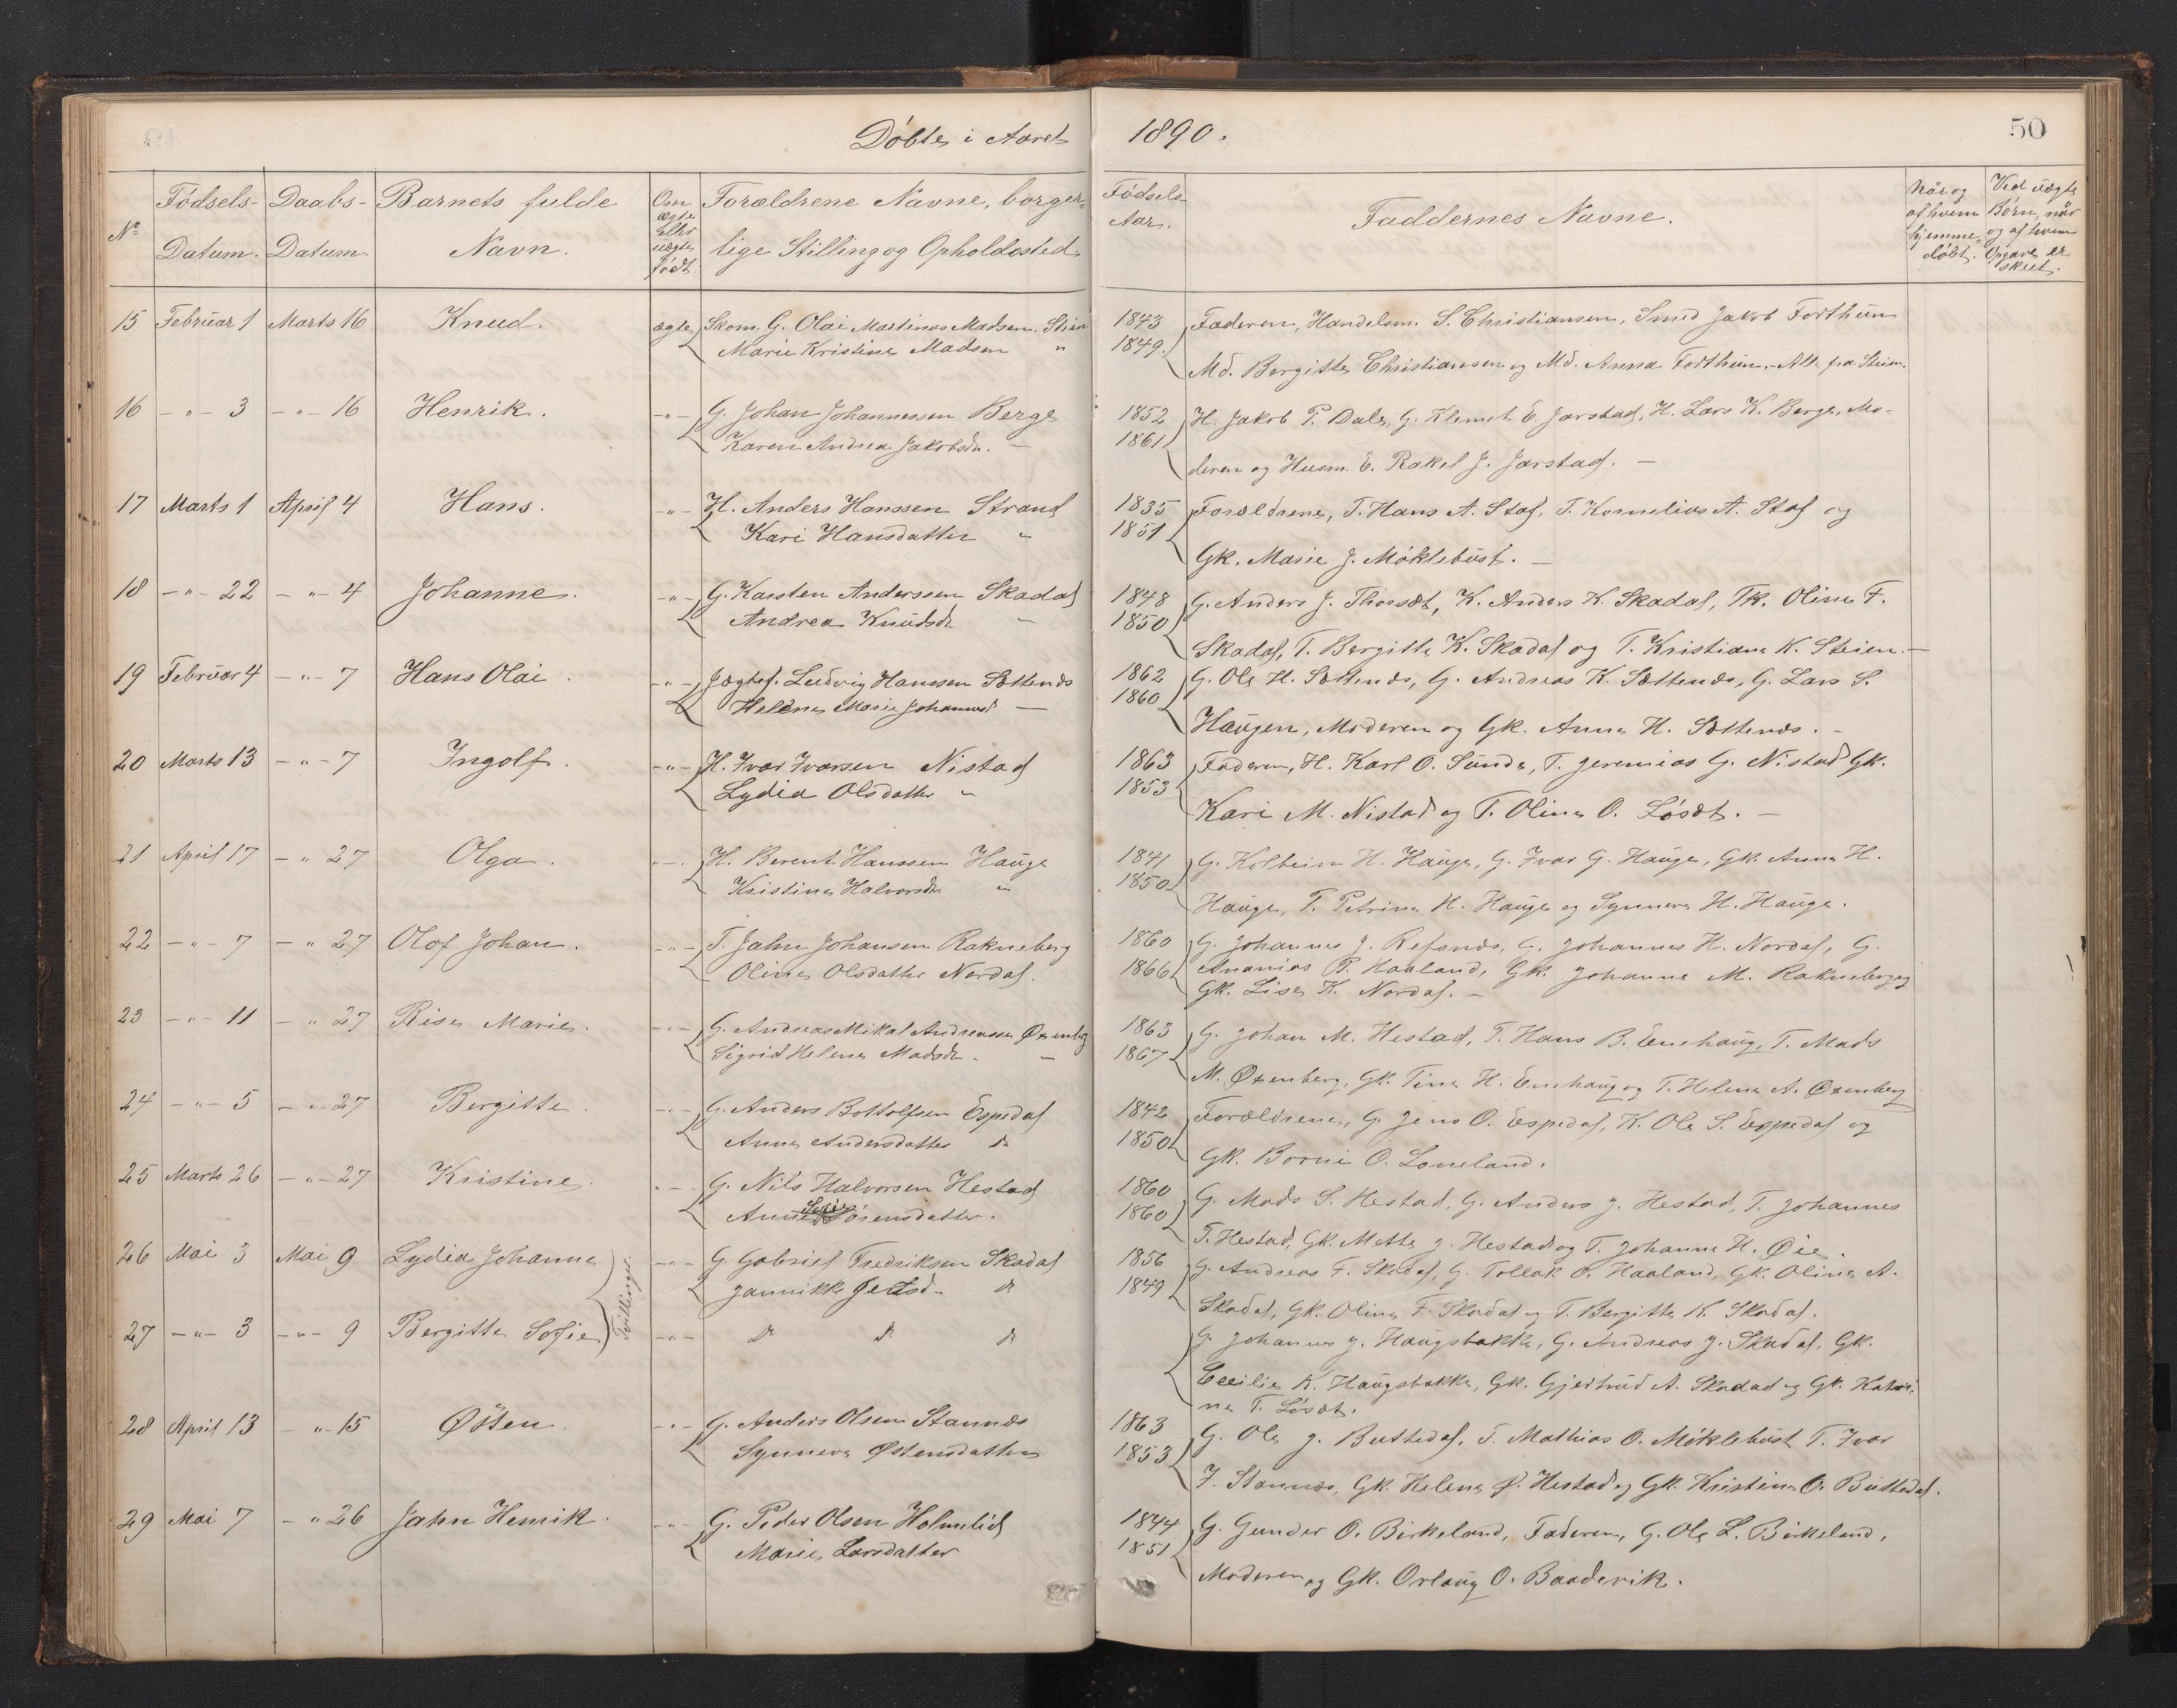 Döbte i Aaret 1890.
50
Nº
Fødsels-Datum.
Daabs-Datum.
Barnets fulde Navn.
Om ægte eller uægte født.
Forældrene Navne, borger-
lige Stilling og Opholdssted.
Fødsels Aar.
Faddernes Navne.
Når og af hvem hjemme-døbt.
Ved uægte Børn, når og af hvem Opgave er skeet.
15 Februar 1 Marts 16 Knud. ægte Skom. G. Olai Martinus Madsen. Steien 1843 Faderen, Handelsm. S. Christiansen, Smed Jakob Forthun
Marie Kristine Madsen " 1849. Md. Bergitte Christiansen og Md. Anna Forthun. Alle fra Steien.
16 -"- 3 -"- 16 Henrik. -"- G. Johan Johannessen Berge 1852 H. Jakob P. Dale, G. Klemet E. Jarstad, H. Lars K. Berge, Mo-
Karen Andrea Jakobsdr. - 1861 deren og Husm. E. Rakel J. Jarstad. -
17 Marts 1 April 4 Hans. -"- H. Anders Hanssen Strand 1835 Forældrene, T. Hans A. Staf, T. Kornelius A. Staf og
Kari Hansdatter " 1851 Gk. Marie J. Möklebust. -
18 -"- 22 -"- 4 Johanne. -"- G. Karsten Anderssen Skadal 1848 G. Anders J. Thorsæt, K. Anders K. Skadal, Tk. Oline F.
Andrea Knudsdr - 1850 Skadal, T. Bergitte K. Skadal og T. Kristiane K. Steien. -
19 Februar 4 -"- 7 Hans Olai. -"- Jægtef. Ludvig Hanssen Sættenæs 1862 G. Ole H. Sættenæs, G. Andreas K. Sættenæs, G. Lars S.
Helene Marie Johannesd - 1860 Haugen, Moderen og Gk. Anna H. Sættenæs. -
20 Marts 13 -"- 7 Ingolf. -"- H. Ivar Ivarsen Nistad 1863 Faderen, H. Karl O. Sunde, T. Jeremias G. Nistad Gk.
Lydia Olsdatter " 1853 Kari M. Nistad og T. Oline O. Løsæt. -
21 April 17 -"- 27 Olga. -"- H. Berent Hanssen Hauge 1841 G. Kolbein H. Hauge, G. Ivar G. Hauge, Gk. Anna H.
Kristine Halvorsdr " 1850 Hauge, T. Petrine H. Hauge og Synneve H. Hauge.
22 -"- 7 -"- 27 Olaf Johan. -"- T. Jahn Johansen Rakneberg 1860 G. Johannes J. Refsnæs, G. Johannes H. Nordal, G.
Oline Olsdatter Nordal. 1866 Ananias P. Haaland, Gk. Johanne M. Rakneberg og
Gk. Lise K. Nordal. -
23 -"- 11 -"- 27 Rise Marie. -"- G. Andreas Mikal Andreassen Øxenberg 1863 G. Johan M. Hestad, T. Hans B. Enehaug, T. Mads
Sigrid Helene Madsdr. - 1867 M. Øxenberg, Gk. Tine H. Enehaug og T. Helene A. Øxenberg
24 -"- 5 -"- 27 Bergitte. -"- G. Anders Bottolfsen Espedal 1842 Forældrene, G. Jens O. Espedal, K. Ole S. Espedal og
Anne Andersdatter do 1850 Gk. Borni O. Loneland.
25 Marts 26 -"- 27 Kristine. -"- G. Nils Halvorsen Hestad 1860 G. Mads S. Hestad, G. Anders J. Hestad, T. Johannes
Anne Sörensdatter. 1860 T. Hestad, Gk. Mette J. Hestad og T. Johanne H. Øie.
26 Mai 3 Mai 9 Lydia Johanne -"- G. Gabriel Fredriksen Skadal 1856 G. Andreas F. Skadal, G. Tollak O. Haaland, Gk. Oline A.
Tvillinger. Jannikke Jetsd. do 1849 Skadal, Gk. Oline F. Skadal og T. Bergitte K. Skadal.
27 -"- 3 -"- 9 Bergitte Sofie -"- do do do G. Johannes J. Haugsbakke, G. Andreas J. Skadal, Gk.
Cecilie K. Haugsbakke, Gk. Gjertrud A. Skadal og Gk. Katri-
ne T. Løsæt.
28 April 13 -"- 15 Østen. -"- G. Anders Olsen Stannæs 1863 G. Ole J. Buttedal, T. Mathias O. Möklebust T. Ivar
Synneve Østensdatter 1853 J. Stannæs, Gk. Helene P. Hestad og Gk. Kristine O. Buttedal.
29 Mai 7 -"- 26 Jahn Henrik. -"- G. Peder Olsen Holmelid 1844 G. Gunder O. Birkeland, Faderen, G. Ole L. Birkeland,
Marie Larsdatter 1851 Moderen og Gk. Orlaug O. Baadevik.